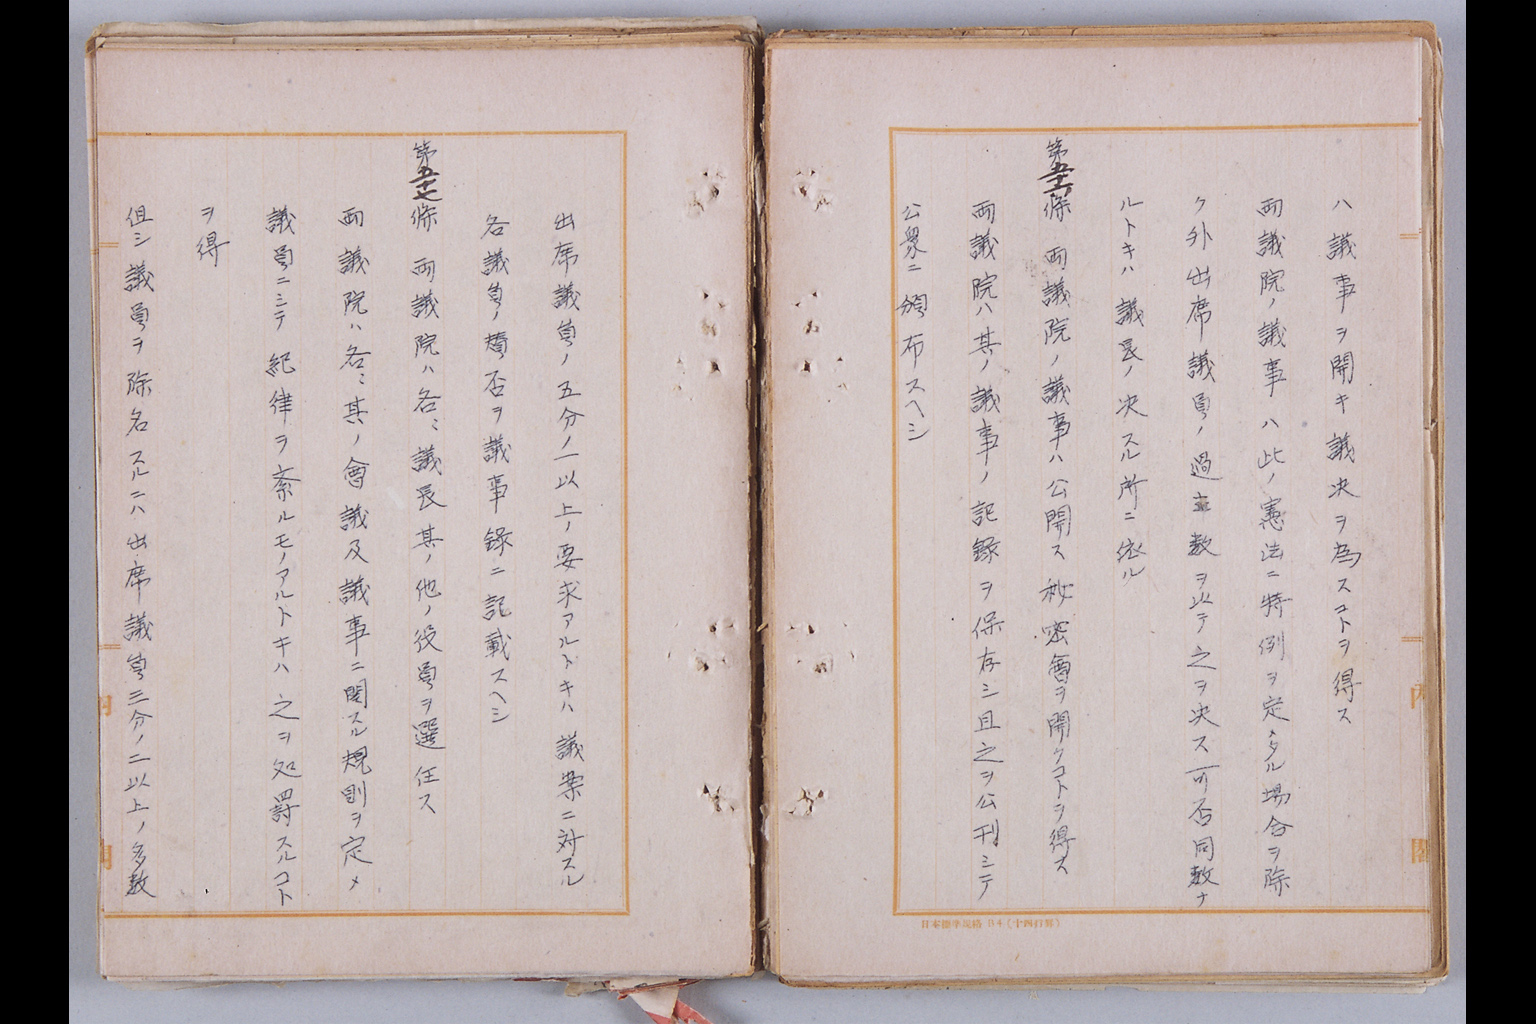 ハ議事ヲ開キ議決ヲ為スコトヲ得ス
両議院ノ議事ハ此ノ憲法ニ特例ヲ定メタル場合ヲ除
ク外出席議員ノ過半数ヲ以テ之ヲ決ス可否同数ナ
ルトキハ議長ノ決スル所ニ依ル
第五十六條 両議院ノ議事ハ公開ス秘密會ヲ開クコトヲ得ス
両議院ハ其ノ議事ノ記録ヲ保存シ且之ヲ公刊シテ
公衆ニ頒布スヘシ
日本標準規格 B4(十四行罫)
内閣
出席議員ノ五分ノ一以上ノ要求アルトキハ議案ニ対スル
各議員ノ賛否ヲ議事録ニ記載スヘシ
第五十七條 両議院ハ各〻議長其ノ他ノ役員ヲ選任ス
両議院ハ各〻其ノ會議及議事ニ関スル規則ヲ定メ
議員ニシテ紀律ヲ紊ルモノアルトキハ之ヲ処罰スルコト
ヲ得
但シ議員ヲ除名スルニハ出席議員三分ノ二以上ノ多数
内閣